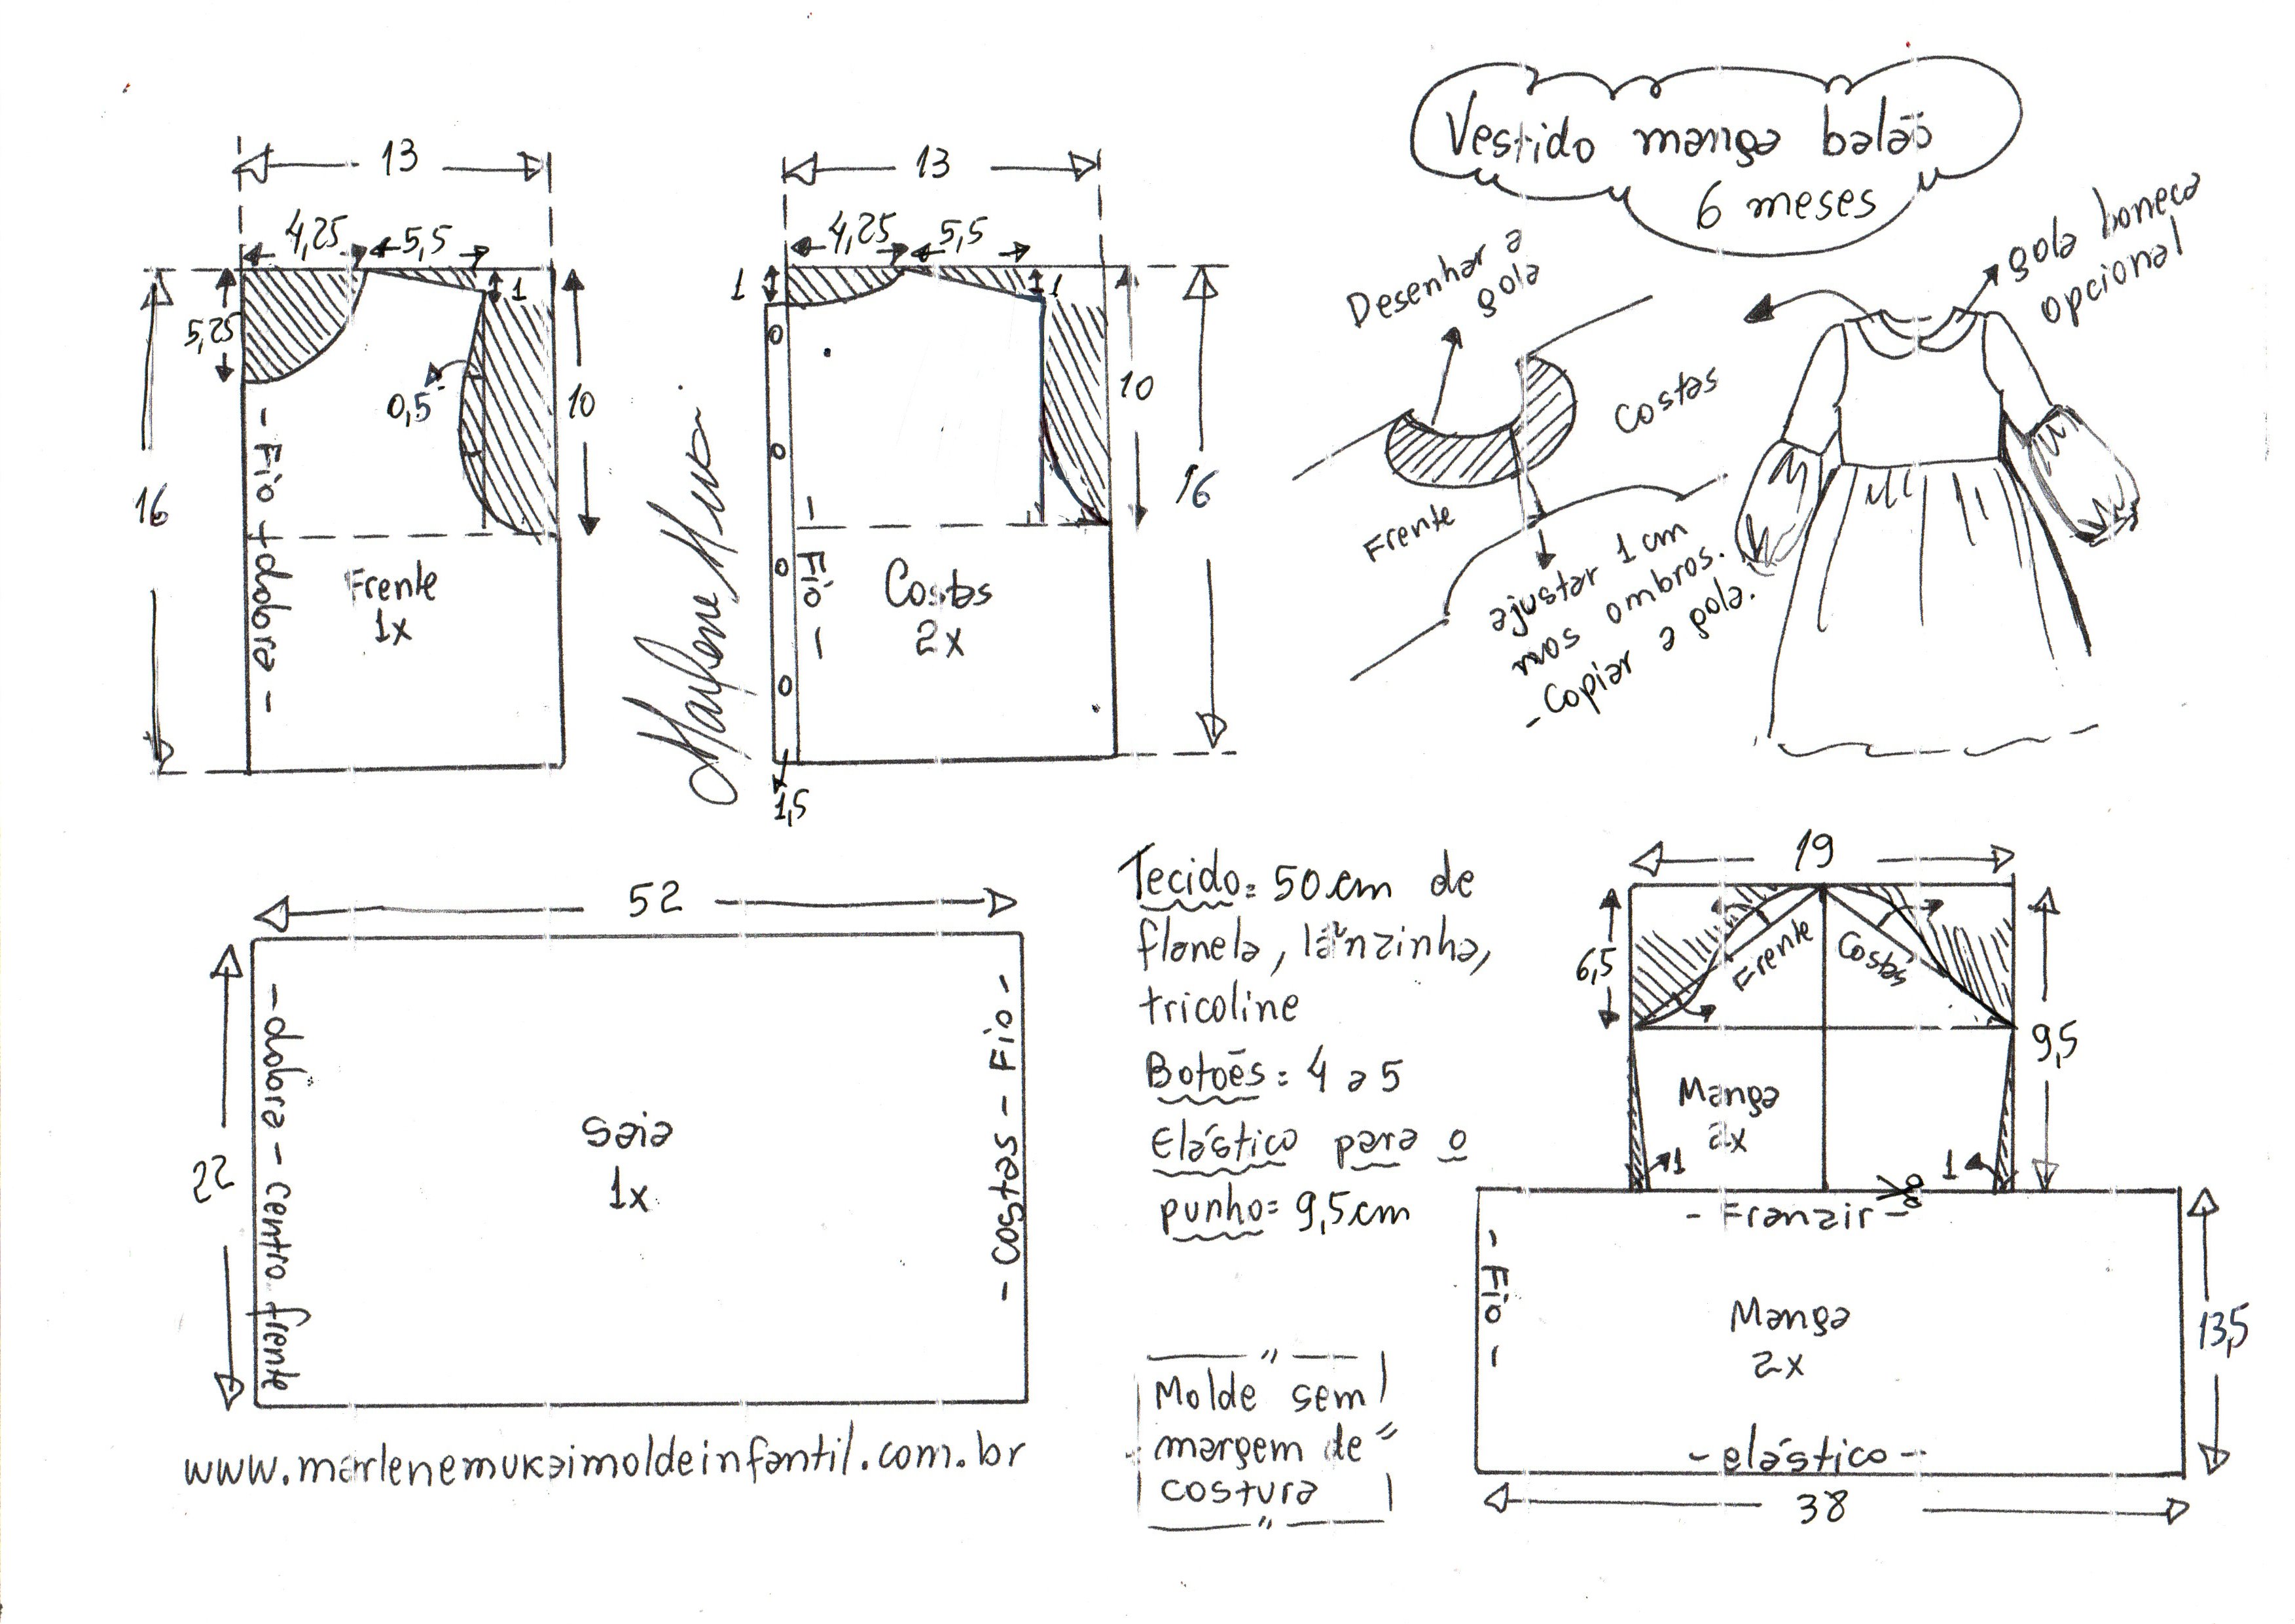 Vestido manga balão
6 meses
13
4,25
5,5
5,25
1
0,5
10
16
- Fio + dobra -
Frente
1x
13
4,25
5,5
1
1
10
16
- Fio -
Costas
2x
1,5
Desenhar a
gola
Costas
Frente
ajustar 1 cm
nos ombros.
- Copiar a gola.
gola boneca
opcional
52
22
- dobra - centro frente
Saia
1x
- costas - Fio -
www.marlenemukaimoldeinfantil.com.br
Tecido= 50 cm de
flanela, lãnzinha,
tricoline
Botões: 4 a 5
Elástico para o
punho= 9,5cm
Molde sem
margem de
costura
19
6,5
9,5
Frente
Costas
Manga
2x
1
1
- Franzir -
- Fio -
Manga
2x
13,5
- elástico -
38